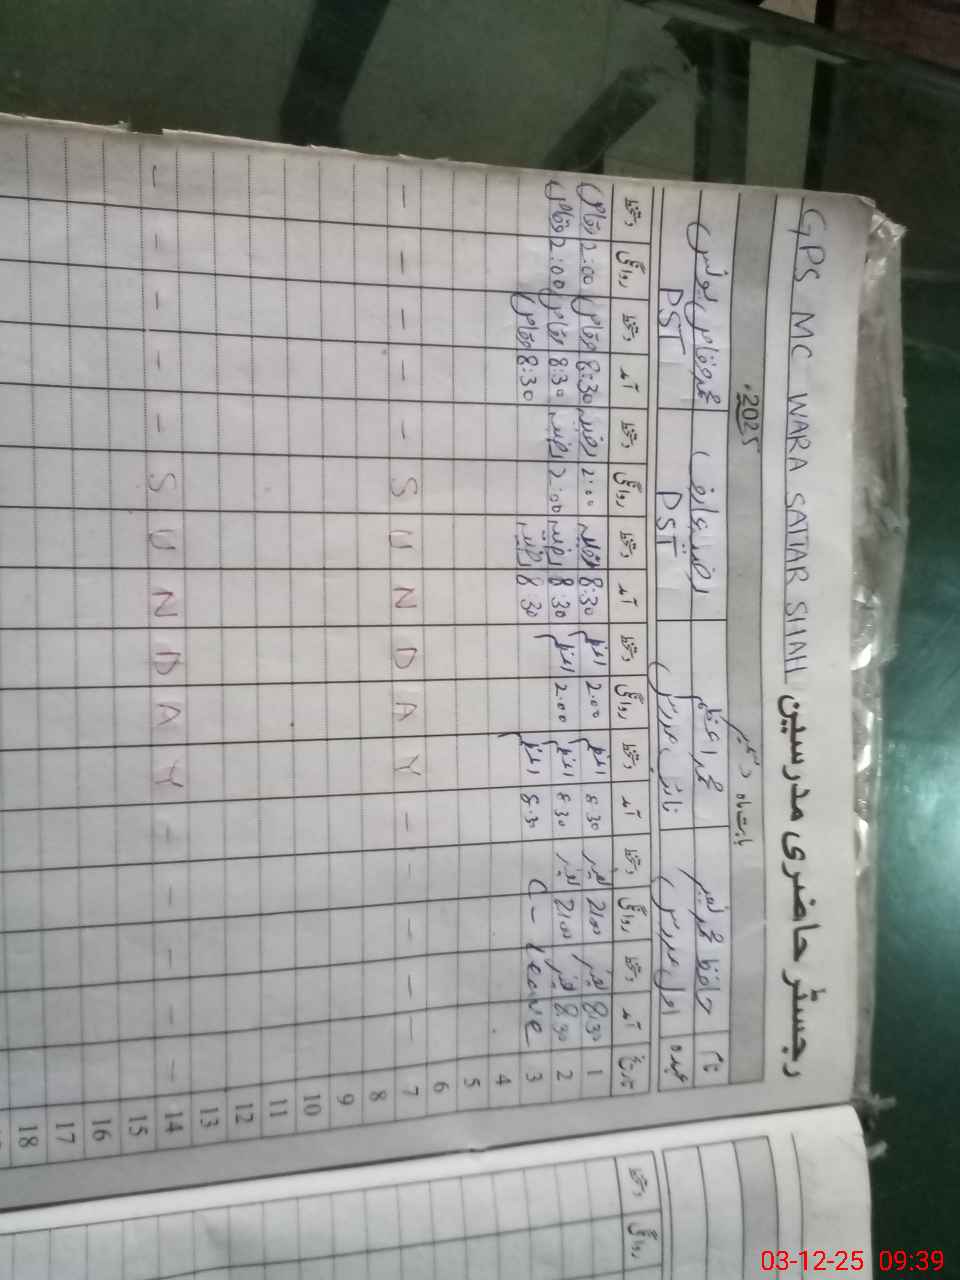 GPS MC WARA SATTAR SHAH رجسٹر حاضری مدرسین
بابت ماہ دسمبر 2025
نام حافظ محمد محمد اعظم محمد وقاص یونس
عہدہ اول مدرس نائب مدرس PST PST
تاریخ آمد دستخط روانگی دستخط آمد دستخط روانگی دستخط آمد دستخط روانگی دستخط آمد دستخط روانگی دستخط
1 8:30 2:00 8:30 2:00 8:30 2:00 8:30 وقاص 2:00 وقاص
2 8:30 2:00 8:30 2:00 8:30 2:00 8:30 وقاص 2:00 وقاص
3 C-leave 8:30 8:30 8:30 وقاص
4
5
6
7 - - - SUNDAY - - - - -
8
9
10
11
12
13
14 - - - - SUNDAY - - - - -
15
16
17
18
دستخط روانگی
03-12-25 09:39